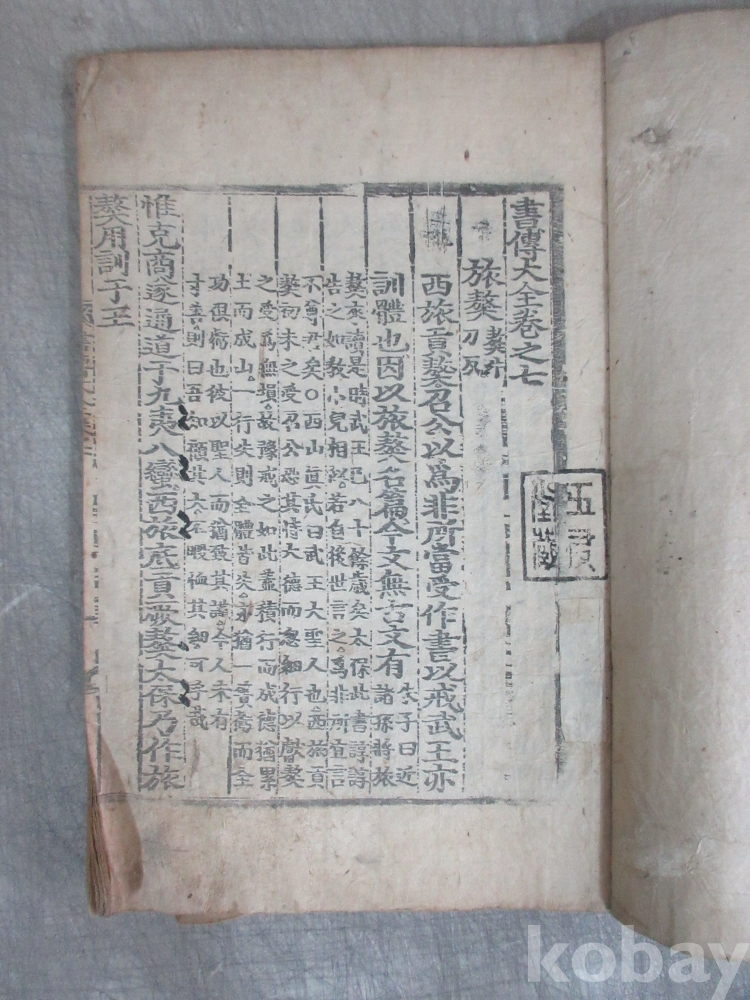 書傳大全卷之七
旅獒 獒牛刀反
西旅貢獒召公以爲非所當受作書以戒武王亦
訓體也因以旅獒名篇今文無古文有 朱子曰近諸孫將旅
獒來讀是時武王已八十餘歲矣太保此書諄諄
告之如敎小兒相似若自後世言之爲非所宜言
不尊君矣○西山眞氏曰武王大聖人也西旅貢
獒初未之受召公恐其恃大德而忽細行以督獒
之受爲無損故豫戒之如此盖積行而成德猶累
土而成山一行失則全體皆失
功俱 也彼以聖人而猶致其 今人未有
寸善則曰吾知顧其大 暇恤其細可乎哉
惟克商遂通道于九夷八蠻西旅底貢厥獒太保乃作旅
獒用訓于王
kobay